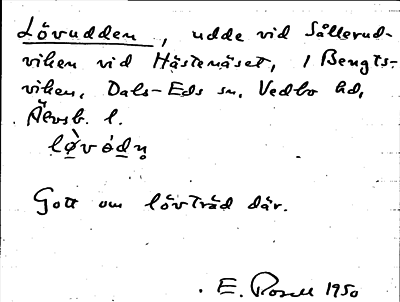 Lövudden, udde vid Sållerud-
viken vid Hästenäset, i Bengts-
viken, Dals-Eds sn, Vedbo hd,
Älvsb. l.
lø̀vódn̥
Gott om lövträd där.
E. Rosell 1950